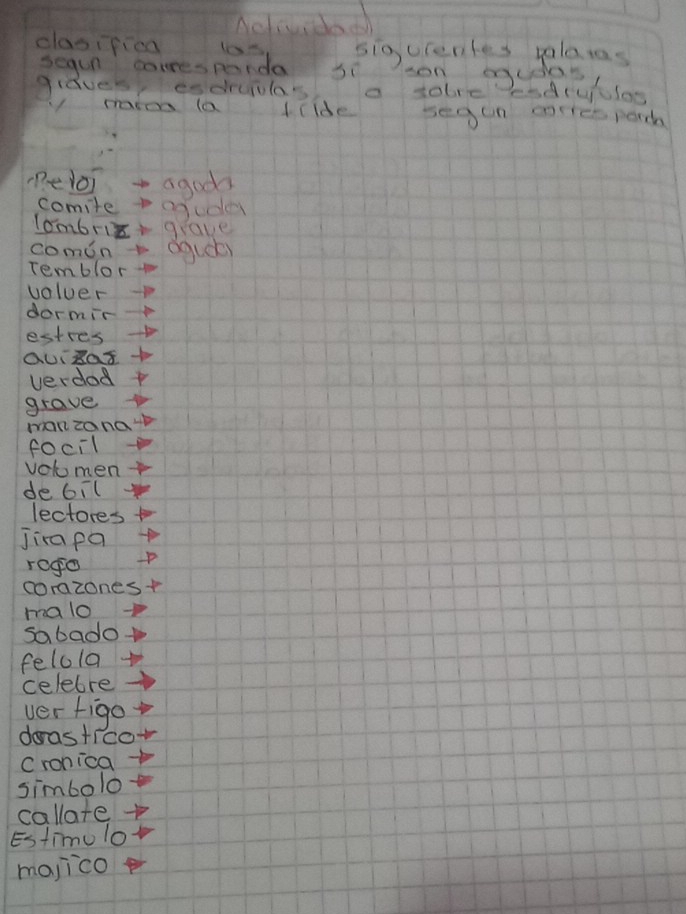 Actividad
clasifica las siguientes palaras
segun corresponda si son agudas,
graves, esdrujulas o sobre esdrujulas
y marca la tilde segun corresponda
Reloj → aguda
comite → aguda
lombriz → grave
común → aguda
Temblor →
volver →
dormir →
estres →
avizas →
verdad →
grave →
manzana →
focil →
volumen →
debil →
lectores →
Jirapa →
rogo →
corazones →
malo →
sabado →
felula →
celebre →
vertigo →
drastico →
cronica →
simbolo →
callate →
Estimulo →
majico →